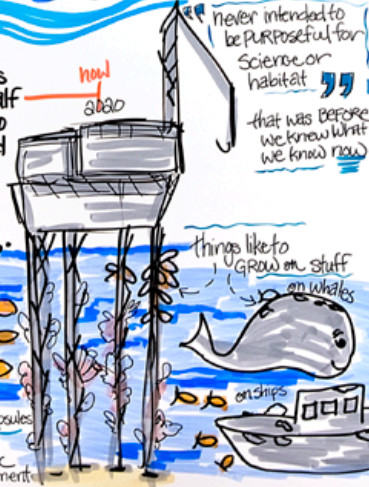 “ never intended to
be PURPOSEFUL for
Science or
habitat ”
that was BEFORE
we knew WHAT
we know now
now
2020
things like to
GROW on stuff
on whales
on ships